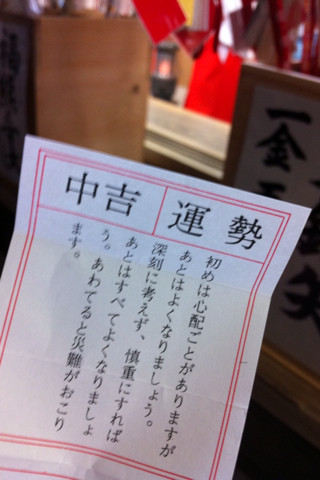 運勢
中吉
初めは心配ごとがありますが
あとはよくなりましょう。
深刻に考えず、慎重にすれば
あとはすべてよくなりましょ
う。あわてると災難がおこり
ます。
一金